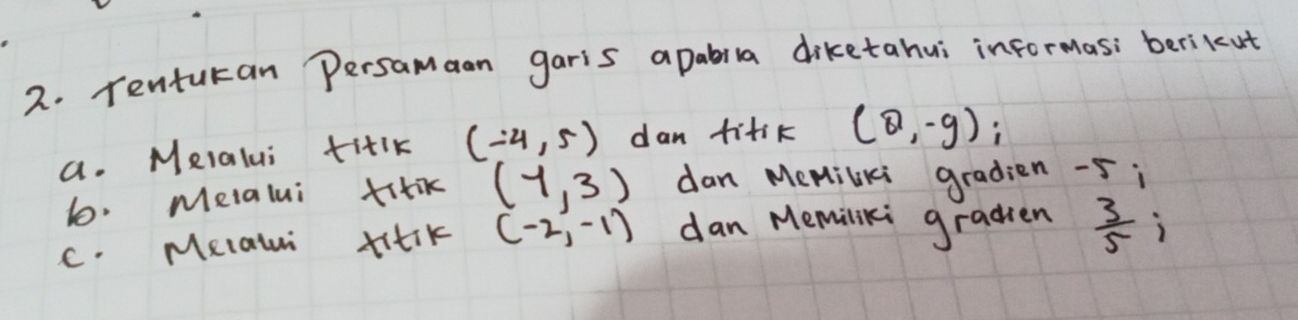 2. Tentukan Persamaan garis apabila diketahui informasi berikut
a. Melalui titik (-4,5) dan titik (0,-9);
b. Melalui titik (1,3) dan Memiliki gradien -5;
c. Melalui titik (-2,-1) dan Memiliki gradien 3/5;